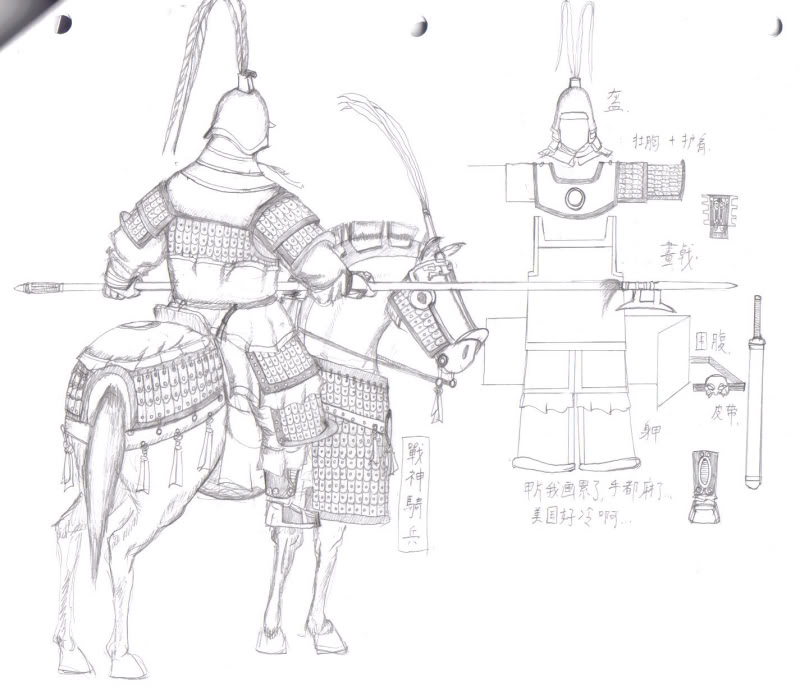 盔
壮胸 + 护肩
畫戟
围腹
皮带
身甲
戰神騎兵
甲片我画累了,手都麻了...
美国好冷啊...